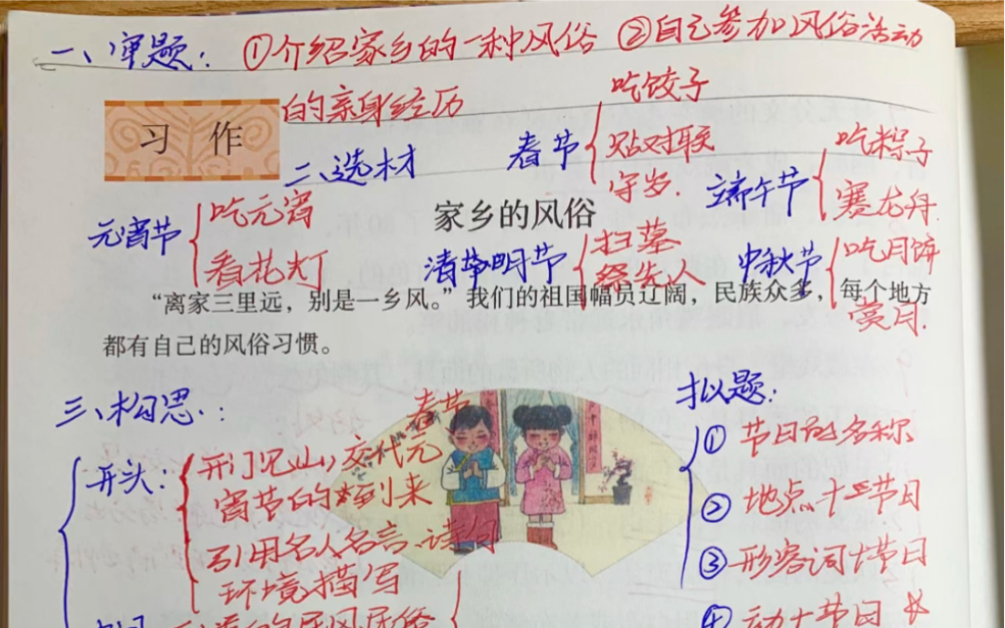 一、审题：①介绍家乡的一种风俗 ②自己参加风俗活动
的亲身经历
习作
二、选材
元宵节
吃元宵
看花灯
春节
吃饺子
贴对联
守岁.
端午节
吃粽子
赛龙舟.
家乡的风俗
清明节
扫墓
祭先人
中秋节
吃月饼
赏月.
“离家三里远，别是一乡风。”我们的祖国幅员辽阔，民族众多，每个地方
都有自己的风俗习惯。
三、构思：
开头：
开门见山，交代元
春节
宵节的到来
引用名人名言、诗句
环境描写
拟题：
① 节日的名称
② 地点+节日
③ 形容词+节日
④ 动+节日